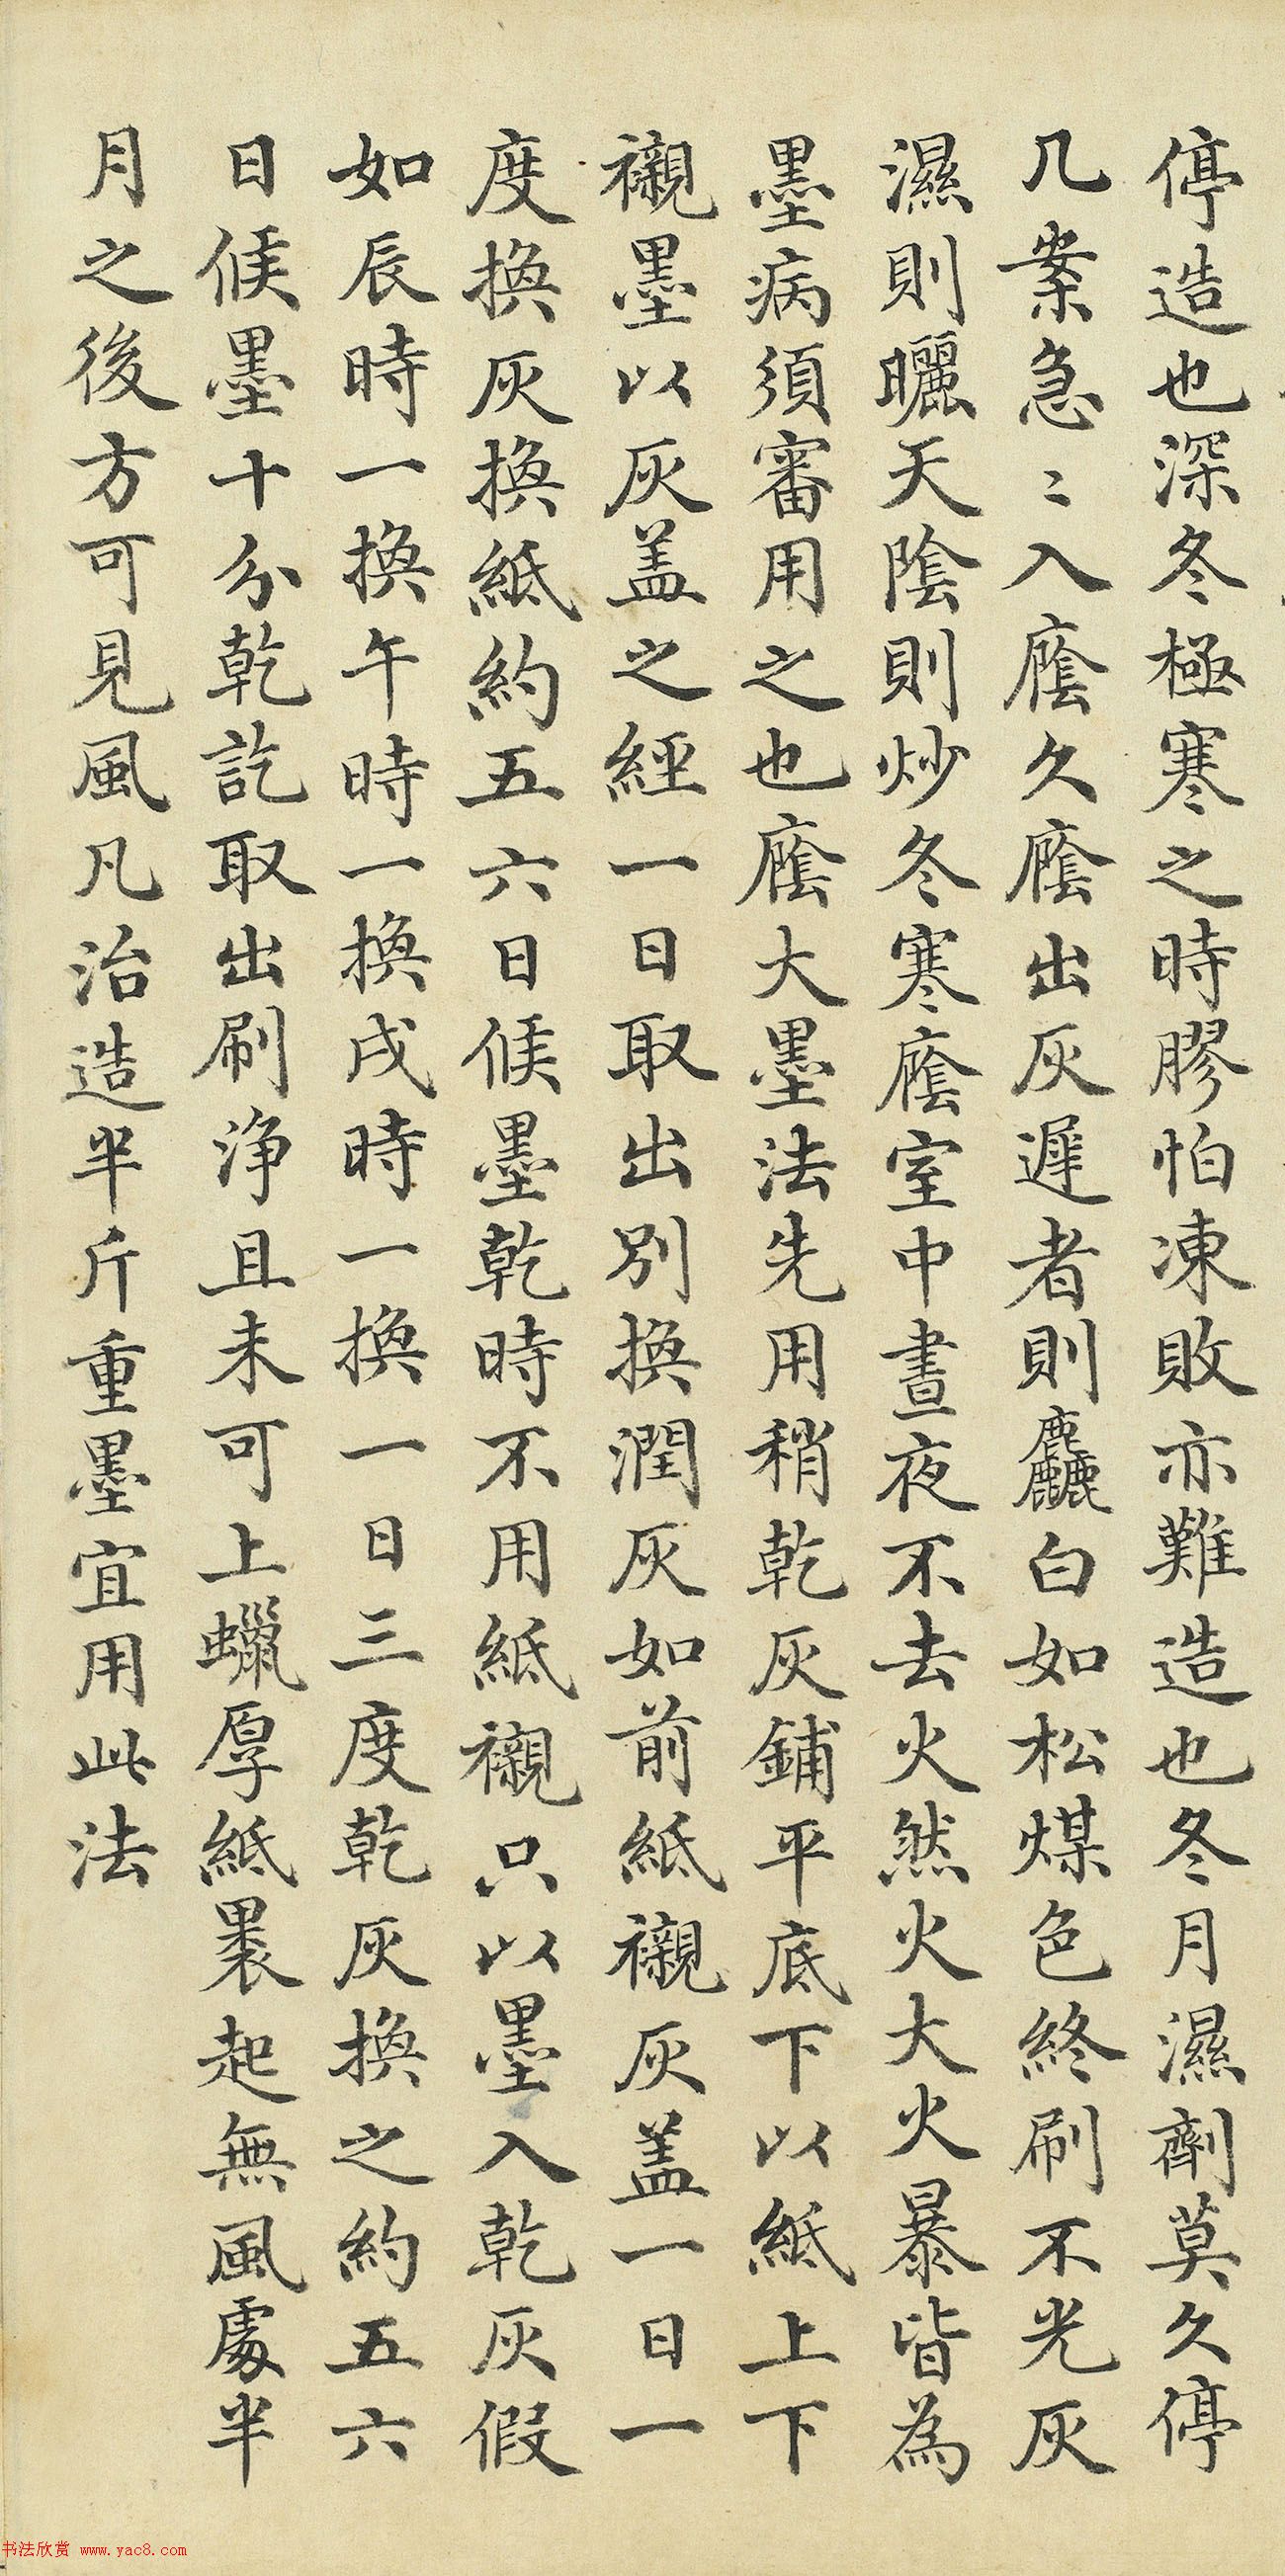 停造也深冬極寒之時膠怕凍敗亦難造也冬月濕劑莫久停
几案急〻入廕久廕出灰遲者則麤白如松煤色終刷不光灰
濕則曬天陰則炒冬寒廕室中晝夜不去火然火大火暴皆為
墨病須審用之也廕大墨法先用稍乾灰鋪平底下以紙上下
襯墨以灰盖之經一日取出別換潤灰如前紙襯灰盖一日一
度換灰換紙約五六日候墨乾時不用紙襯只以墨入乾灰假
如辰時一換午時一換戌時一換一日三度乾灰換之約五六
日候墨十分乾訖取出刷淨且未可上蠟厚紙裹起無風處半
月之後方可見風凡治造半斤重墨宜用此法
书法欣赏 www.yac8.com